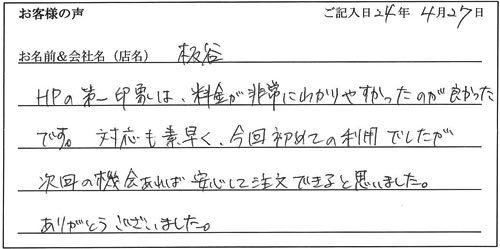 お客様の声 ご記入日24年 4月27日
お名前&会社名(店名) 板谷
HPの第一印象は、料金が非常にわかりやすかったのが良かった
です。対応も素早く、今回初めての利用でしたが
次回の機会あれば安心して注文できると思いました。
ありがとうございました。